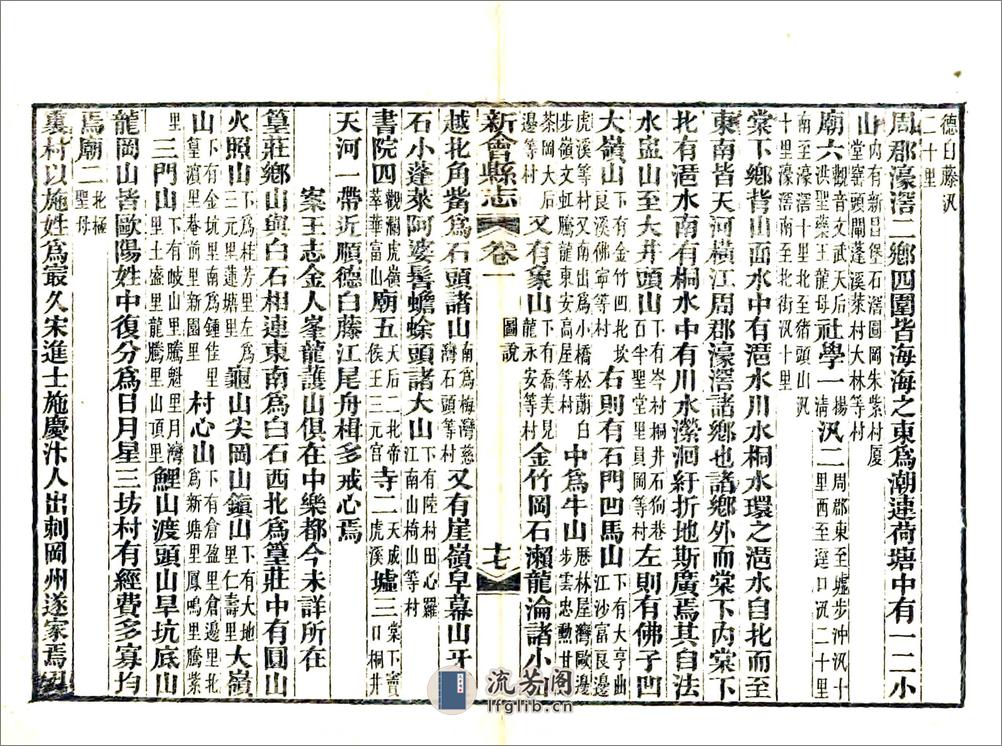 德白藤汛
二十里
周郡濠滘二鄉四圍皆海海之東爲潮連荷塘中有一二小
山內有新昌堡石滘園岡朱紫村厦
堂窰頭閘蓬溪萊村大林等村
廟六觀音文武天后
洪聖藥王龍母社學一楊清汛二周郡東至墟步沖汛十
里西至逕口汛二十里
南至濠滘汛十里北至豬頭山
十里濠滘南至北街汛十里
棠下鄉背山面水中有滬水川水桐水環之滬水自北而至
東南皆天河橫江周郡濠滘諸鄉也諸鄉外而棠下內棠下
北有滬水南有桐水中有川水瀠洄紆折地斯廣焉其自法
水盥山至大井頭山下有岑村井石狗巷
百半聖堂里員岡等村左則有佛子凹
大嶺山下有金竹凹北坎
良溪佛寧等村右則有石門凹馬山下有大亨曲
江沙富良邊
虎溪等村又南出爲小橋松蓢白
步嶺文虹騰龍東安高屋等村中爲牛山歷林屋灣歐
步雲忠勳甘
邊等村
茶岡大后又有象山下有喬美見
龍永安等村金竹岡石瀨龍淪諸小山
新會縣志
卷一
圖說
十七
越北角觜爲石頭諸山南爲梅灣慈
灣石頭等村又有崖嶺早幕山牙
石小蓬萊阿婆髻蟾蜍頭諸大山下有陸村田心羅
江南山椅山等村
書院四觀瀾虎嶺
萃華富山廟五天后二北帝
侯王三元宮寺二天成
虎溪墟三棠下竇
口桐井
天河一帶近順德白藤江尾舟楫多戒心焉
案王志金人峯龍護山俱在中樂都今未詳所在
篁莊鄉山與白石相連東南爲白石西北爲篁莊中有圓山
火照山下爲桂芳里左爲
三元里蓮塘里龜山尖岡山鎭山下有大地
里仁壽里大嶺
山下有金坑里南爲鍾佳里
皇瀝里巷前里新園里村心山下有倉盈里倉邊里北
爲新塘里鳳鳴里騰紫
里三門山下有岐山里騰魁里月灣
里土盛里龍騰里山頂里鯉山渡頭山旱坑底山
龍岡山皆歐陽姓中復分爲日月星三坊村有經費多寡均
焉廟二北極
聖母
裏村以施姓爲最久宋進士施慶汴人出刺岡州遂家焉
流芳阁
lfglib.cn